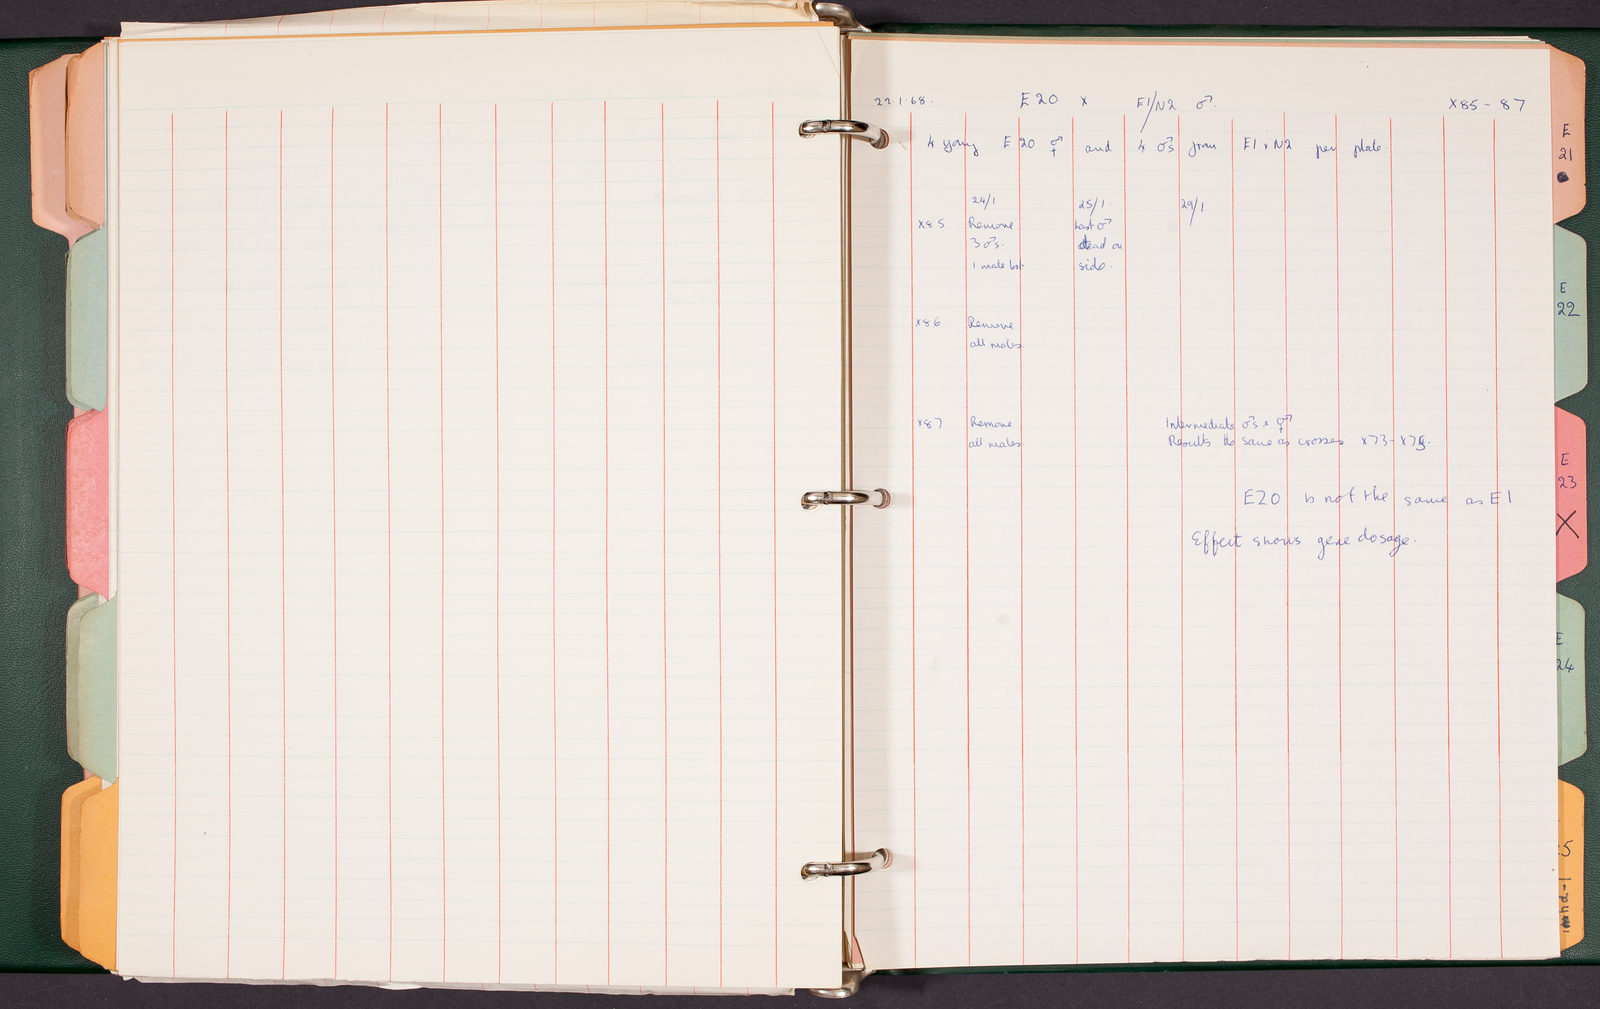 22.1.68. E20 x E1/N2 ♂ X85-87
4 young E20 ⚥ and 4 ♂s from E1 x N2 per plate.
24/1 25/1. 29/1
X85 Remove Last ♂
3 ♂s. dead on
1 male lost side.
X86 Remove
all males
X87 Remove Intermediate ♂s & ⚥
all males Results the same as crosses X73-X75.
E20 is not the same as E1
Effect shows gene dosage.
E
21
E
22
E
23
X
E
24
25